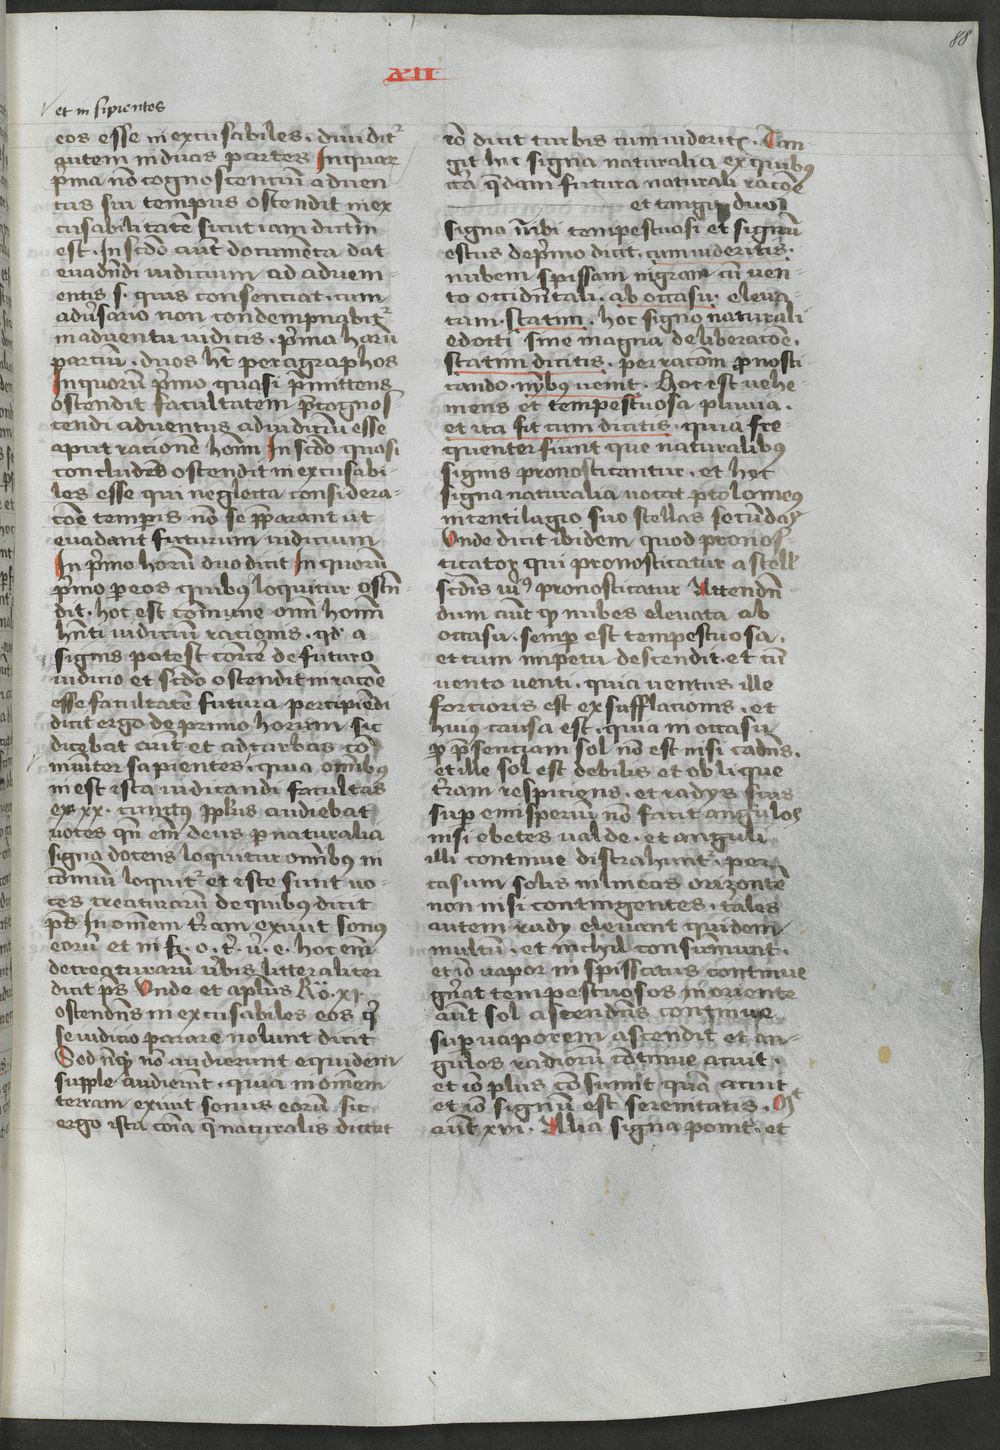 88
XII
et insipientes
eos esse inexcusabiles. diuidit᷑
autem in duas partes In quar᷑
p̄ma nō cognoscentiū aduen
tus sui tempus ostendit inex
cusabilitatē sicut iam dictū
est. In scd̄o aūt documēta dat
euadendi iudicium ad aduen-
entis s. quas consentiat. cum
adu̓sario non condempnabit᷑
in aduentu iudicis. p̄ma harū
partium. duos h̄t peragraphos
In quorū p̄mo, quasi p̄mittens
ostendit facultatem p̄cognos-
cendi aduentus ad iudiciū esse
aput rationē homī In scd̄o quasi
concludēs ostendit inexcusabi-
les esse qui neglecta considera-
cōe temporis nō se p̄parant ut
euadant futurum iudicium
In p̄mo horū duo dicit In quorū
p̄mo per eos quibus loquitur osten̄
dit. hoc est cōmune omī homī
hn̄ti iudiciū racionis. qd̓ a
signis potest coīce̓ de futuro
iudicio et scd̄o ostendit in racōe
esse facultatē futura percipiēdi
dicit ergo de primo horum sic
dicebat aūt et ad turbas cō
muniter sapientes. quia omībus
inest ista iudicandi facultas
ex. xx. cunctus pp̄lus audiebat
uoces qn̄ em̄ deus per naturalia
signa docens loquitur omībus in
cōmuni loquit᷑ et iste sunt uo-
ces creaturarū de quibus dicit
ps̄ In omnem t̓ram exiuit sonus
eorū et in fi. o. t̓. u̓. e. hoc em̄
de creaturarū u̓bis litteraliter
dicit ps̄ Unde et aplūs Ro. xi.
ostendn̄s inexcusabiles eos qi̓
se iudicio parare nolunt dicit
Sed nūq̓ nō audierunt equidem
supple audierūt. quia in omem
terram exiuit sonus eorū sic
ergo ista cōia que naturalis dictat
rō dicit turbis cum uiderit᷑. Tan-
git hic signa naturalia ex quibus
circa q̄dam futura naturali racōe
et tangit duo
signa īmbri tempestuosi et signū
estus de p̄mo dicit. cum uideritis.
nubem spissam nigram cū uen-
to occidn̄tali. ab occasu. eleua
tam. statim. hoc signo naturali
edocti sine magna deliberacōe.
statim dicitis. per racōm pronosti
cando. nymbus uenit. Hoc est uehe-
mens et tempestuosa pluuia.
et ita fit cum dicitis. quia fre-
quenter fiunt que naturalibus
signis pronosticantur. et hec
signa naturalia uocat ptolomeus
in centilogio suo stellas secūdas
Unde dicit ibidem quod pronos-
ticator qui pronosticatur a stell̓
scd̄is u̓i᷑ pronosticatur Attendn̄-
dum aūt qꝫ nubes eleuata ab
occasu. semper est tempestuosa.
et cum impetu descendit. et cū
uento uenti. quia uentus ille
fortioris est exsufflationis. et
huius causa est. quia in occasu
per p̄sentiam sol nō est nisi cadn̄s.
et ille sol est debilis et oblique
t̓ram respiciens. et radys suis
super emisperiū nō facit angulos
nisi ebetes ualde. et anguli
illi continue distrahunt᷑. per
casum solis in lineas orizontē
non nisi contingentes. tales
autem rady eleuant quidem
multū. et nichil consumunt.
et iō uapor inspissatus continue
gn̓at tempestuosos in oriente
aūt sol ascendn̄s continue
super uaporem ascendit et an-
gulos radiorū cōtinue acuit.
et iō plus cōsumit quā acuit
et iō signū est serenitatis. Mt̓
aūt xvi. Alia signa ponit. et